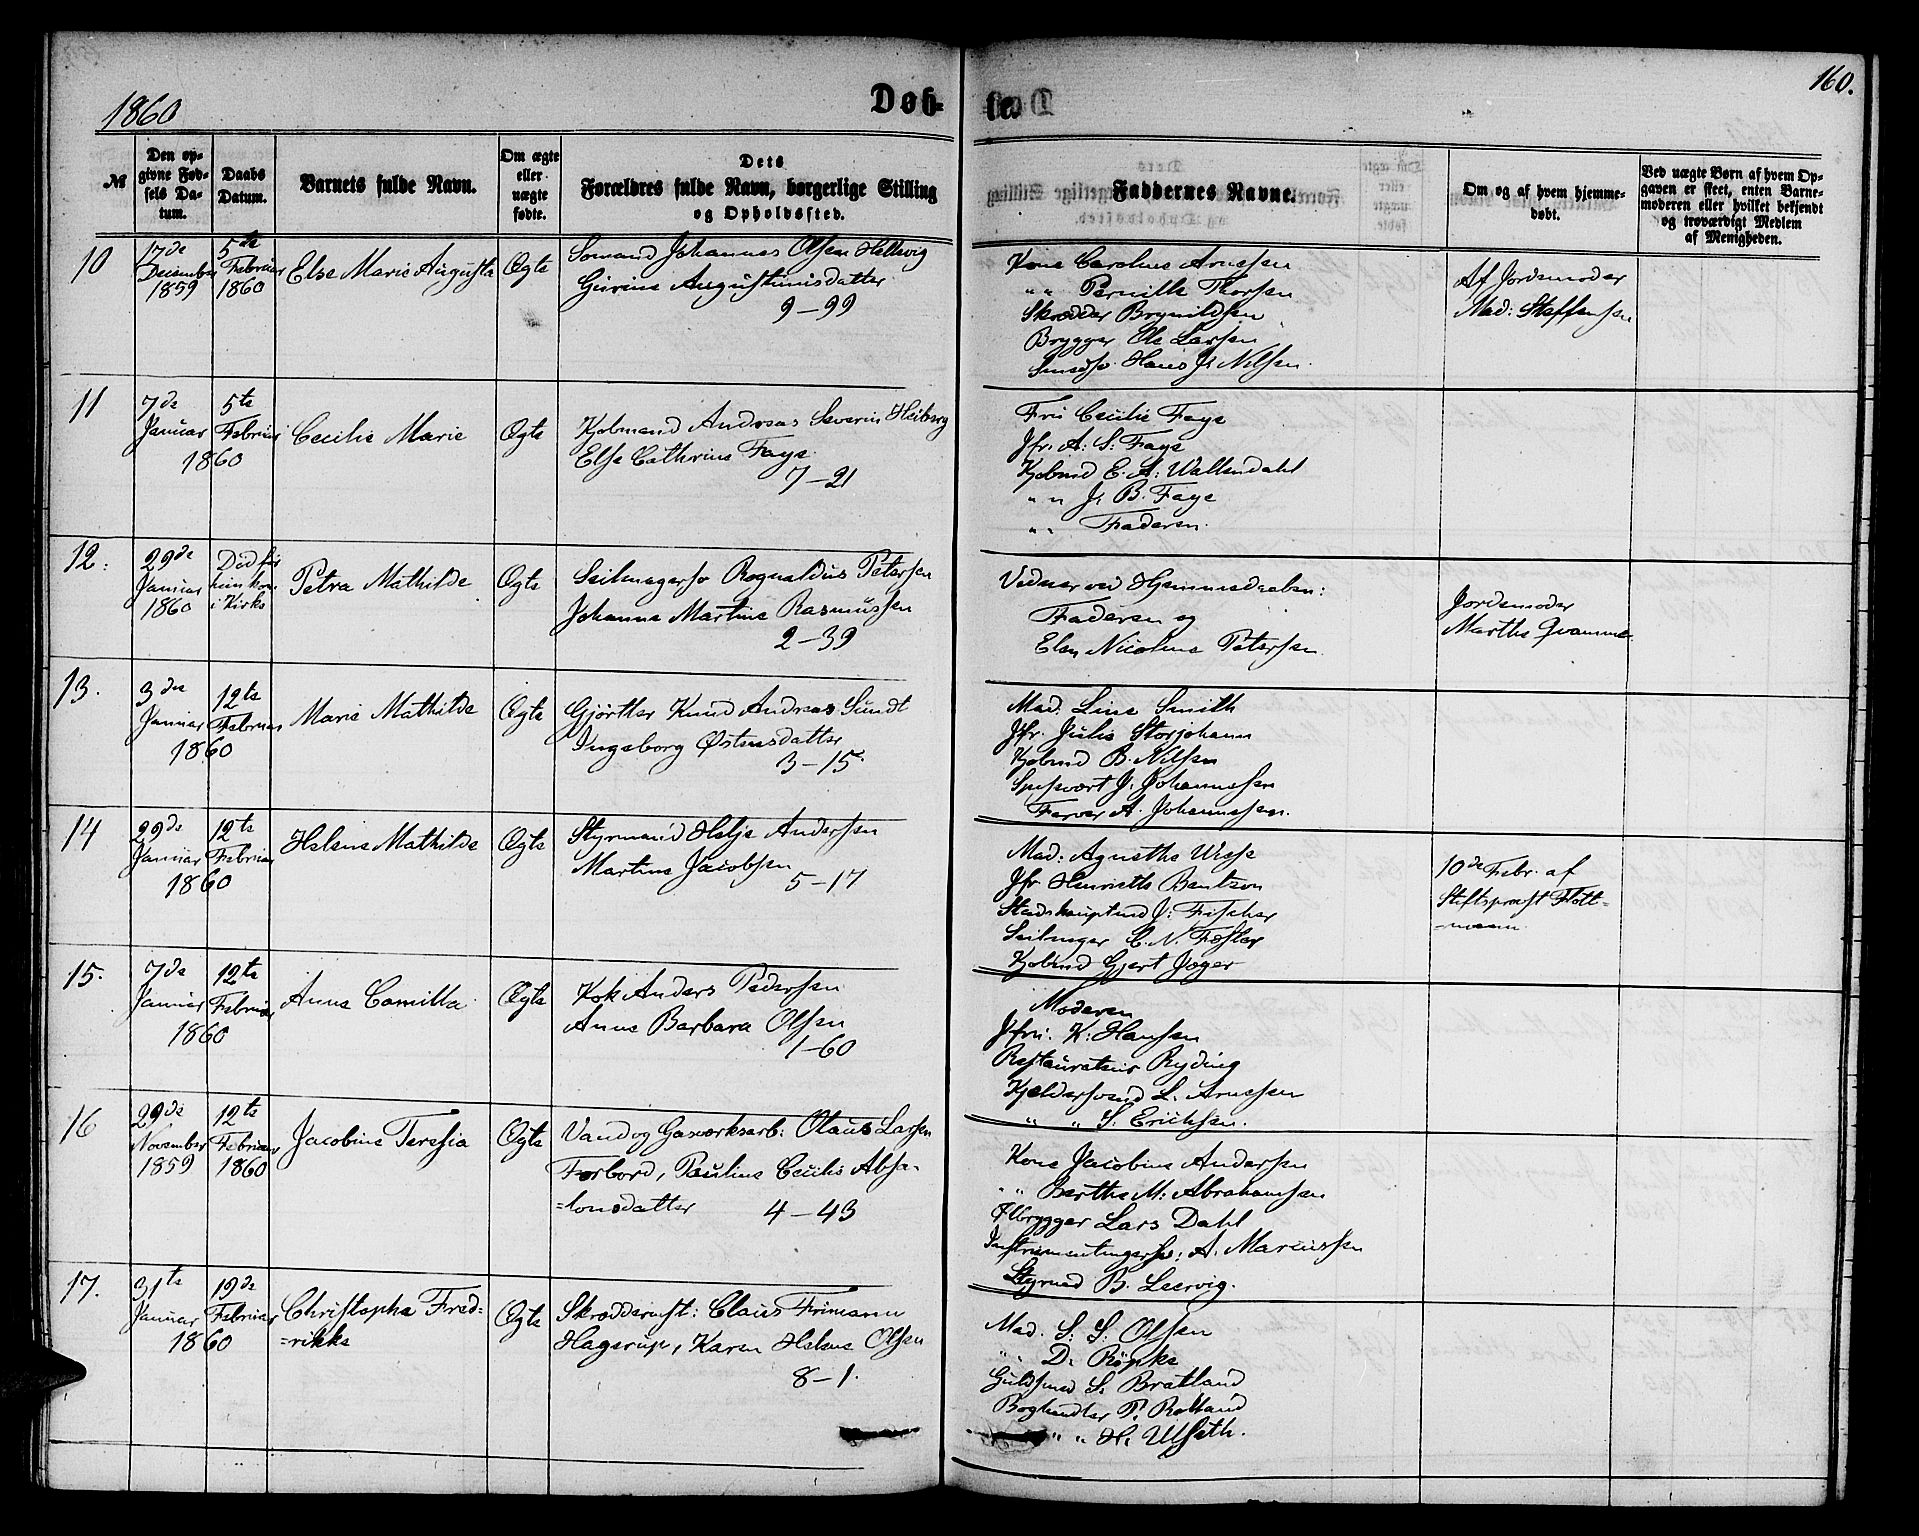 1860
Døb-
te.
160.
№
Den op-
givne Fød-
sels Da-
tum.
Daabs
Datum.
Barnets fulde Navn.
Om ægte
eller
uægte
fødte.
Dets
Forældres fulde Navn, borgerlige Stilling
og Opholdssted.
Faddernes Navne.
Om og af hvem hjemme-
døbt.
Ved uægte Børn af hvem Op-
gaven er skeet, enten Barne-
moderen eller hvilket bekjendt
og troværdigt Medlem
af Menigheden.
10
17de
December
1859
5te
Februar
1860
Else Marie Augusta
Ægte
Sømand Johannes Olsen Hellevig
Gurine Augustinusdatter
9-99
Kone Caroline Arnesen
" " Pernille Thorsen
Skrædder Brynildsen
Brygger Ole Larsen
Smedsv. Hans J. Nilsen.
Af Jordemoder
Mad: Steffensen
11
7de
Januar
1860
5te
Februar
Cecilie Marie
Ægte
Kjøbmand Andreas Severin Heiberg
Else Cathrine Faye.
7-21
Fru Cecilie Faye
Jfr. A. S. Faye
Kjøbmd E. A: Wallendahl
" " J. B. Faye
" " Faderen.
12.
29de
Januar
1860
Død før
hun kom
i Kirke
Petra Mathilde
Ægte
Seilmagersv Rognaldus Petersen
Johanne Martine Rasmussen
2-39
Vidner ved Hjemmedaaben:
Faderen og
Elen Nicoline Petersen.
Jordemoder
Marthe Qvamme
13.
3die
Januar
1860
12te
Februar
Marie Mathilde
Ægte
Gjørtler Knud Andreas Sundt
Ingeborg Østensdatter
3-15.
Mad. Line Smith
Jfr. Julie Storjohann
Kjøbmd B. Nilsen
Spisevært J. Johannessen
Farver A. Johannessen.
14
29de
Januar
1860
12te
Februar
Helene Mathilde
Ægte
Styrmand Helje Andersen
Martine Jacobsen
5-17
Mad: Agnethe Wiese
Jfr Henriette Bentzon
Stadshauptmd J: Fischer
Seilmager C. N. Fæster
Kjøbmd Gjert Jæger
10de Febr. af
Stiftsprost Flott=
=mann.
15.
7de
Januar
1860
12te
Februar
Anna Camilla
Ægte
Kok Anders Pedersen
Anne Barbara Olsen
1-60
Moderen
Jfru: K. Hansen
Restaurateur Ryding
Kjeldersvend L. Arnesen
" " S. Erichsen.
16
29de
November
1859
12te
Februar
1860
Jacobine Teresia
Ægte
Vand og Gasværksarb: Olaus Larsen
Forbord, Pauline Cecilie Absa-
=lonsdatter 4-43
Kone Jacobine Andersen
" " Berthe M: Abrahamsen
Ølbrygger Lars Dahl
Instrumentmagersv: A. Marcussen
Styrmd B. Leervig.
17.
31te
Januar
1860
19de
Februar
Christopha Fred=
=rikke
Ægte
Skræddermst: Claus Frimann
Hagerup, Karen Helene Olsen
8-1.
Mad. S: S. Olsen
" " D. Röpke
Guldsmed S. Bratland
Boghandler T. Rolland
" " H. Ulseth.